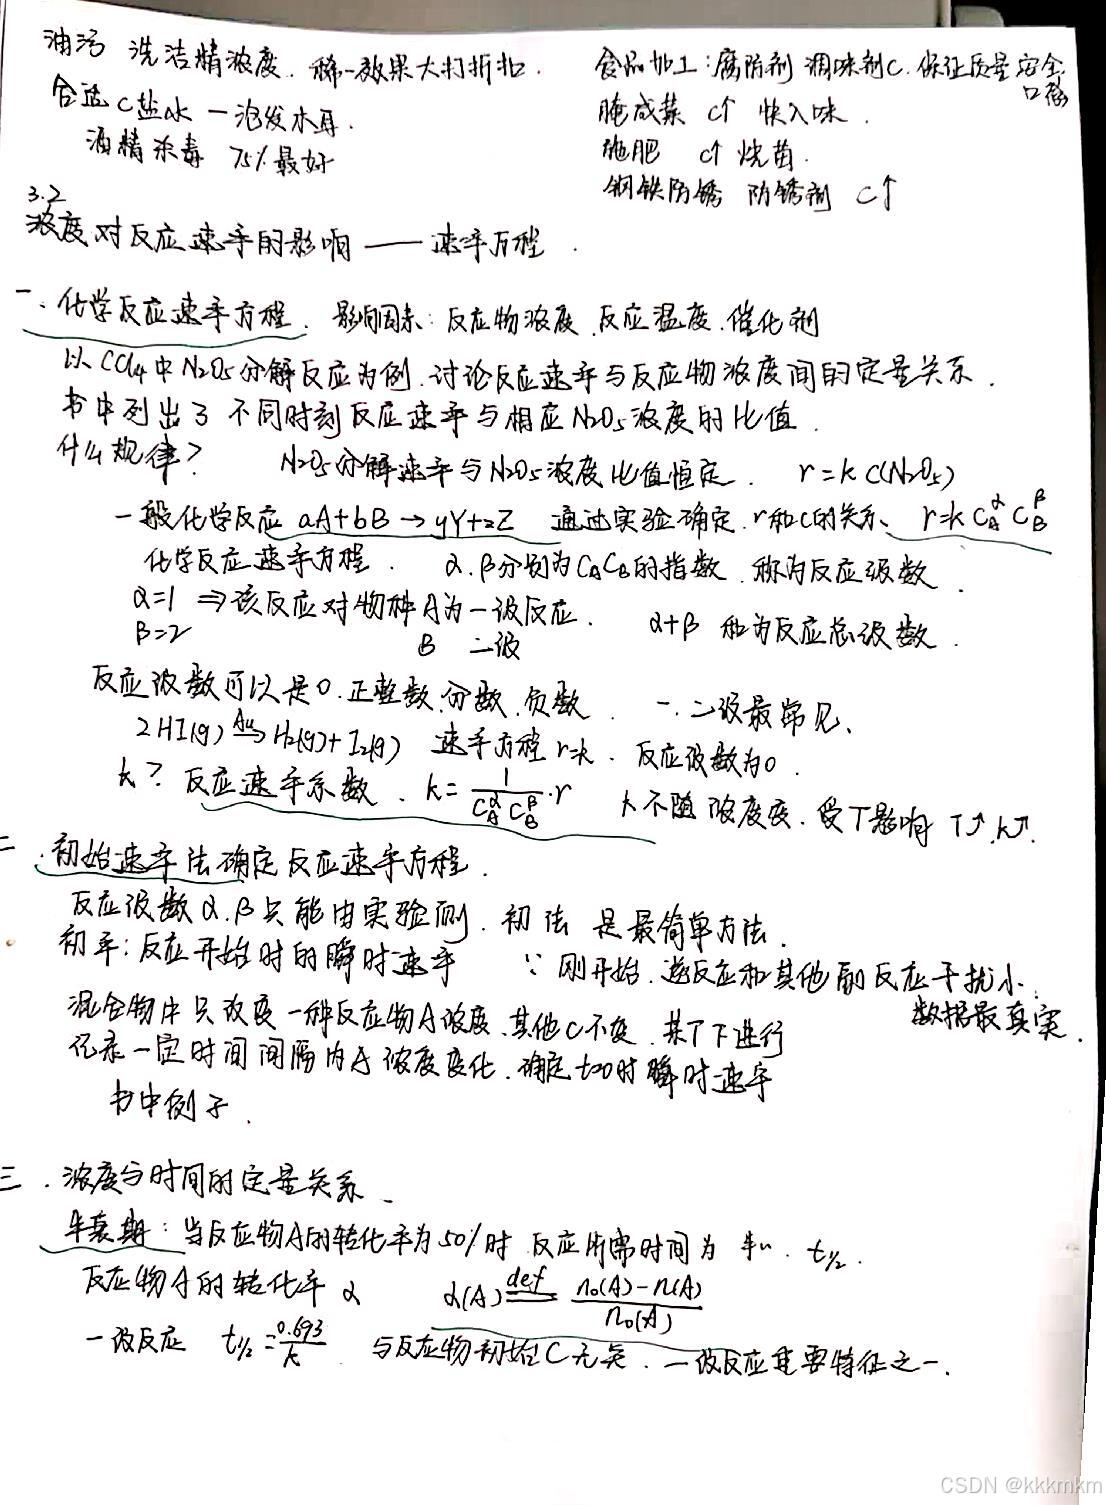 油污 洗洁精浓度. 稀一效果大打折扣.
合适 C盐水 — 泡发木耳.
酒精杀毒 75% 最好
食品加工: 腐防剂 调味剂C. 保证质量安全.
口感
腌咸菜 C↑ 快入味.
施肥 C↑ 烧苗.
钢铁防锈 防锈剂 C↑
3.2
浓度对反应速率的影响 —— 速率方程.
一. 化学反应速率方程. 影响因素: 反应物浓度. 反应温度. 催化剂
以CCl₄中N₂O₅分解反应为例. 讨论反应速率与反应物浓度间的定量关系.
书中列出了不同时刻反应速率与相应N₂O₅浓度的比值.
什么规律? N₂O₅分解速率与N₂O₅浓度比值恒定. r=k C(N₂O₅)
一般化学反应 aA+bB→yY+zZ 通过实验确定. r和C的关系. r=k C_A^α C_B^β
化学反应速率方程. α.β分别为C_A C_B的指数. 称为反应级数.
α=1 ⇒该反应对物种A为一级反应. α+β 和为反应总级数.
β=2 B 二级
反应级数可以是0.正整数.分数.负数. 一.二级最常见.
2HI(g) →(Au) H₂(g)+I₂(g) 速率方程 r=k. 反应级数为0.
k? 反应速率系数. k= 1/(C_A^α C_B^β) ·r k不随浓度变. 受T影响 T↗.k↗.
二.初始速率法确定反应速率方程.
反应级数α.β只能由实验测. 初法 是最简单方法.
初率: 反应开始时的瞬时速率 ∵刚开始. 逆反应和其他副反应干扰小.
数据最真实.
混合物中只改变一种反应物A浓度. 其他C不变. 某T下进行
记录一定时间间隔内A浓度变化. 确定t=0时瞬时速率
书中例子.
三.浓度与时间的定量关系.
半衰期: 当反应物A的转化率为50%时 反应所需时间为 半~. t₁/₂.
反应物A的转化率 α α(A) =(def) (n₀(A)−n(A))/n₀(A)
一级反应 t₁/₂=0.693/k 与反应物初始C无关. 一级反应重要特征之一.
CSDN @kkkmkm